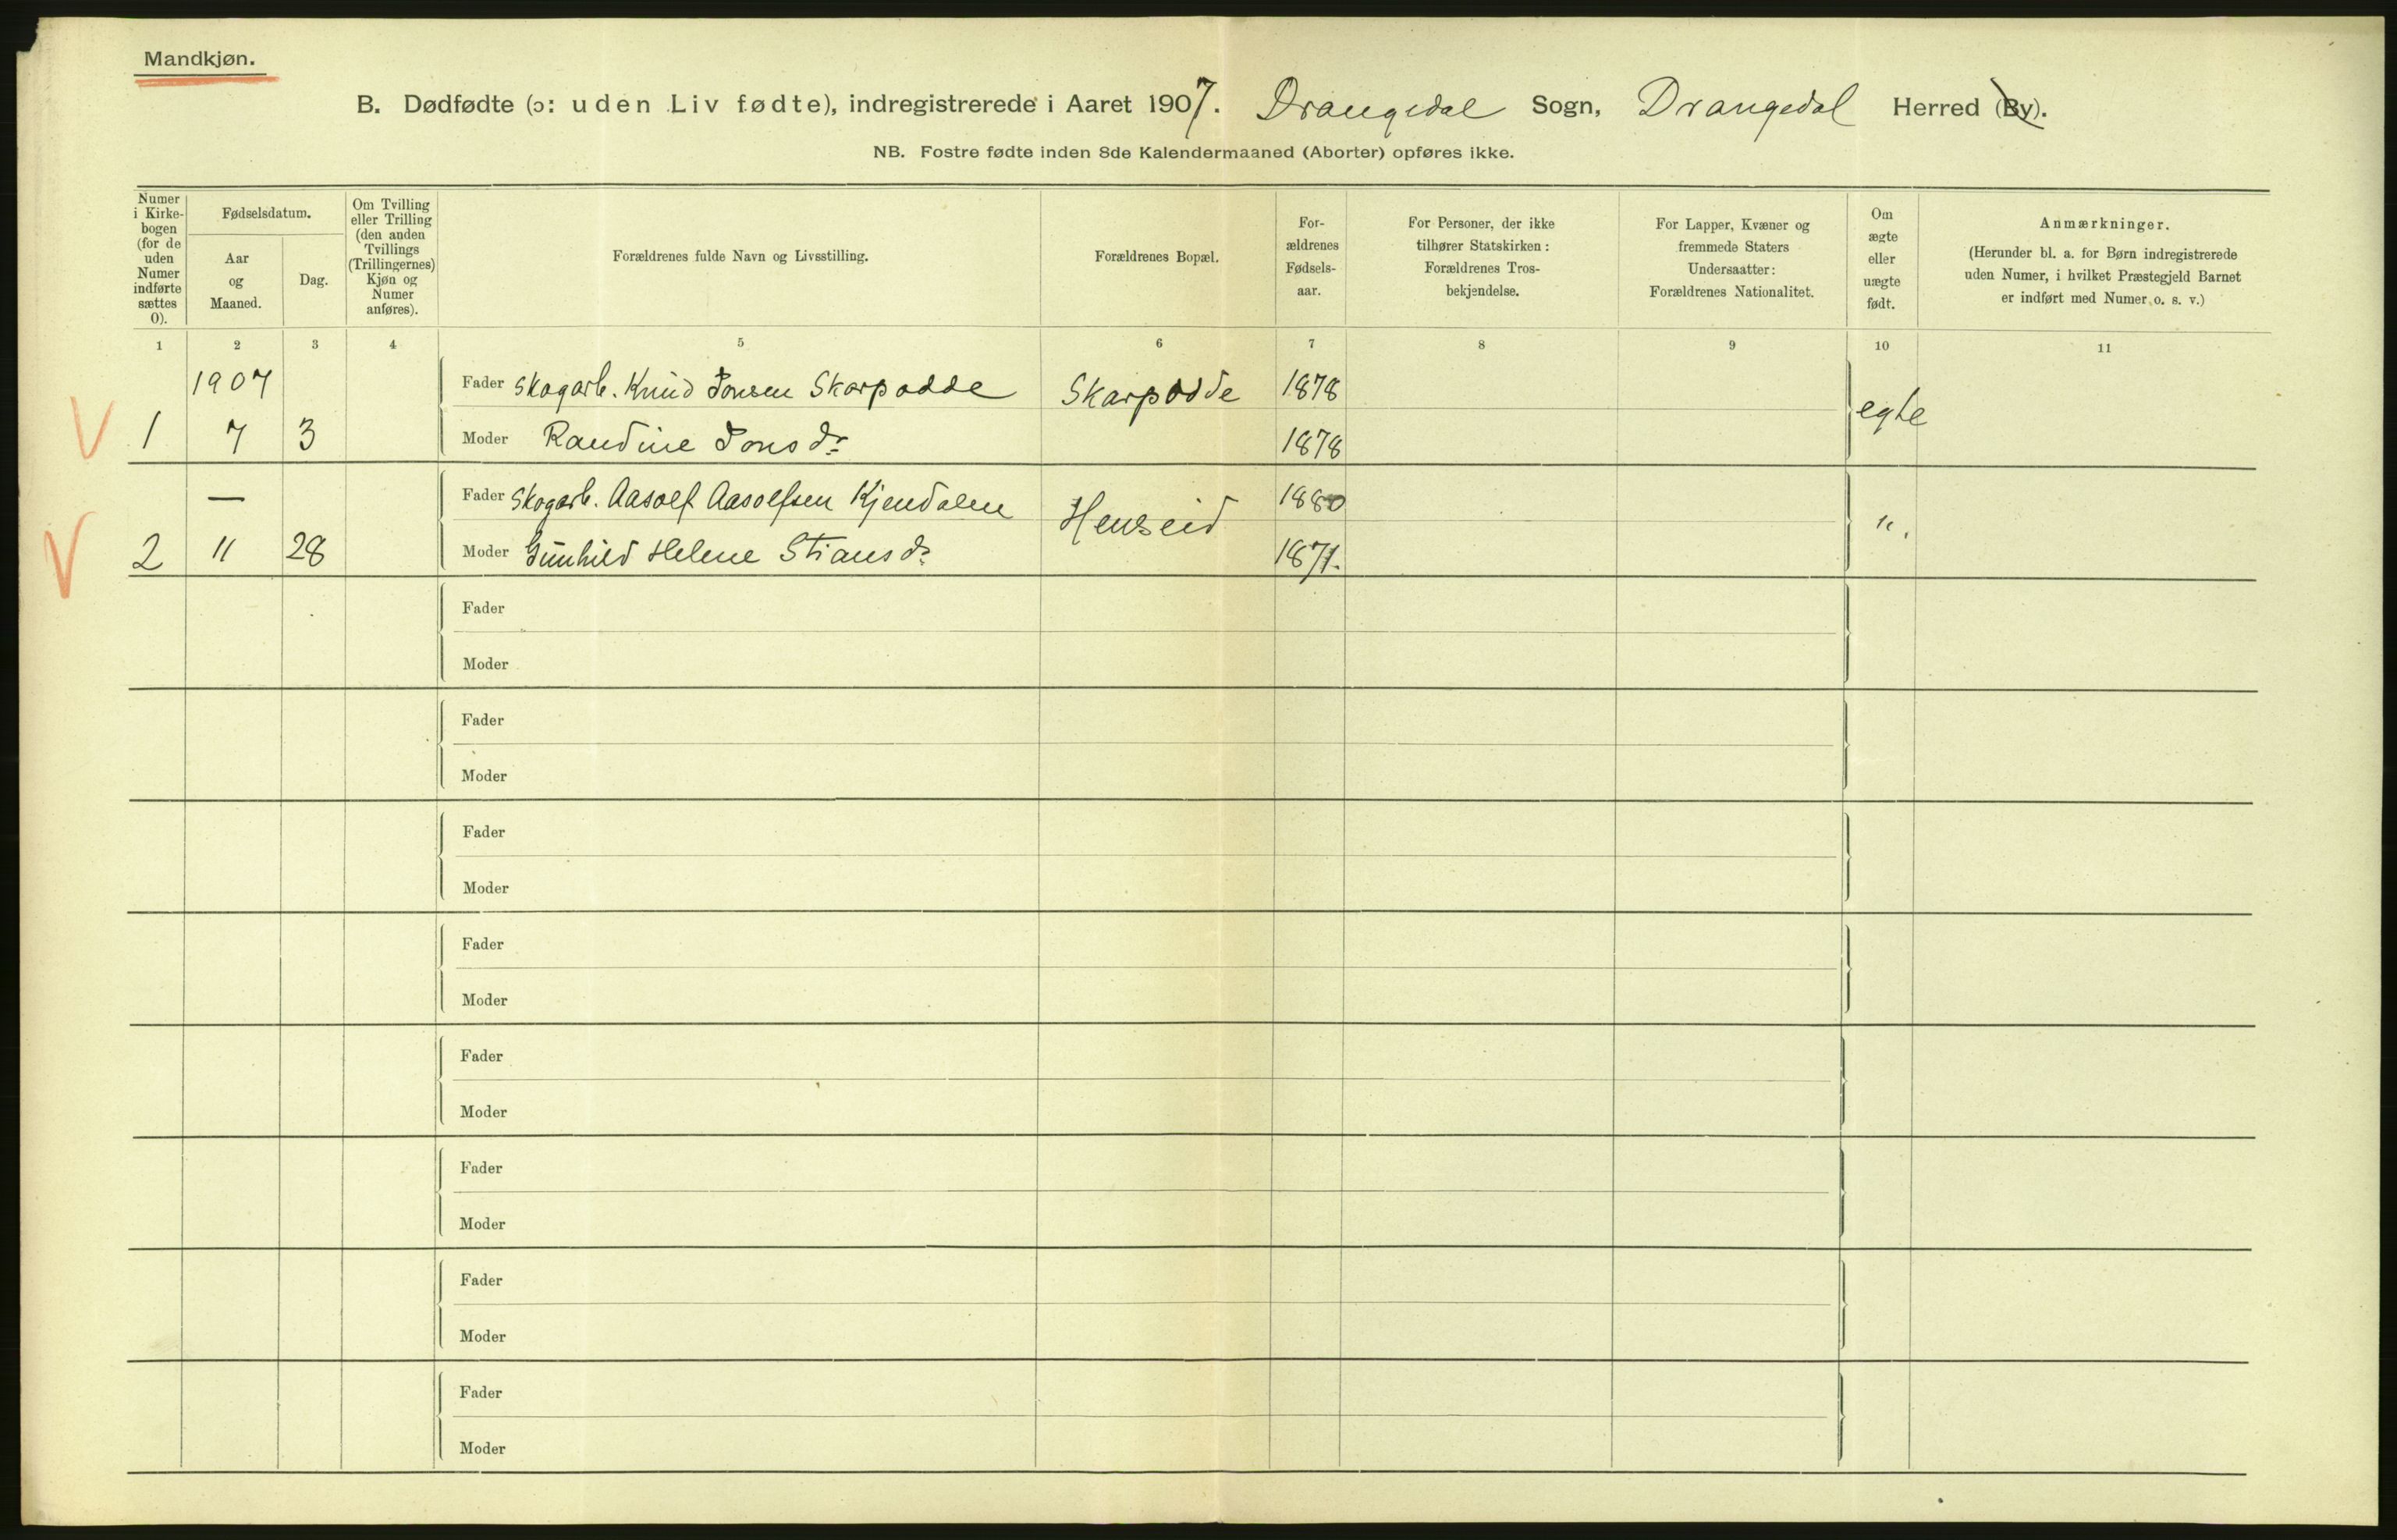 Mandkjøn.
B. Dødfødte (ɔ: uden Liv fødte), indregistrerede i Aaret 1907. Drangedal Sogn, Drangedal Herred (By).
NB. Fostre fødte inden 8de Kalendermaaned (Aborter) opføres ikke.
Numer i Kirkebogen (for de uden Numer indførte sættes 0).
Fødselsdatum.
Aar og Maaned.
Dag.
Om Tvilling eller Trilling (den anden Tvillings (Trillingernes) Kjøn og Numer anføres).
Forældrenes fulde Navn og Livsstilling.
Forældrenes Bopæl.
For-ældrenes Fødsels-aar.
For Personer, der ikke tilhører Statskirken: Forældrenes Tros-bekjendelse.
For Lapper, Kvæner og fremmede Staters Undersaatter: Forældrenes Nationalitet.
Om ægte eller uægte født.
Anmærkninger.
(Herunder bl. a. for Børn indregistrerede uden Numer, i hvilket Præstegjeld Barnet er indført med Numer o. s. v.)
1 2 3 4 5 6 7 8 9 10 11
1907 Fader Skogarb. Knud Jonsen Skarpodde Skarpodde 1878 egte
V 1 7 3 Moder Randine Jonsdr. 1878
— Fader Skogarb. Aasolf Aasolfsen Kjendalen Henseid 1880 ".
V 2 11 28 Moder Gunhild Helene Stiansdr. 1871.
Fader
Moder
Fader
Moder
Fader
Moder
Fader
Moder
Fader
Moder
Fader
Moder
Fader
Moder
Fader
Moder